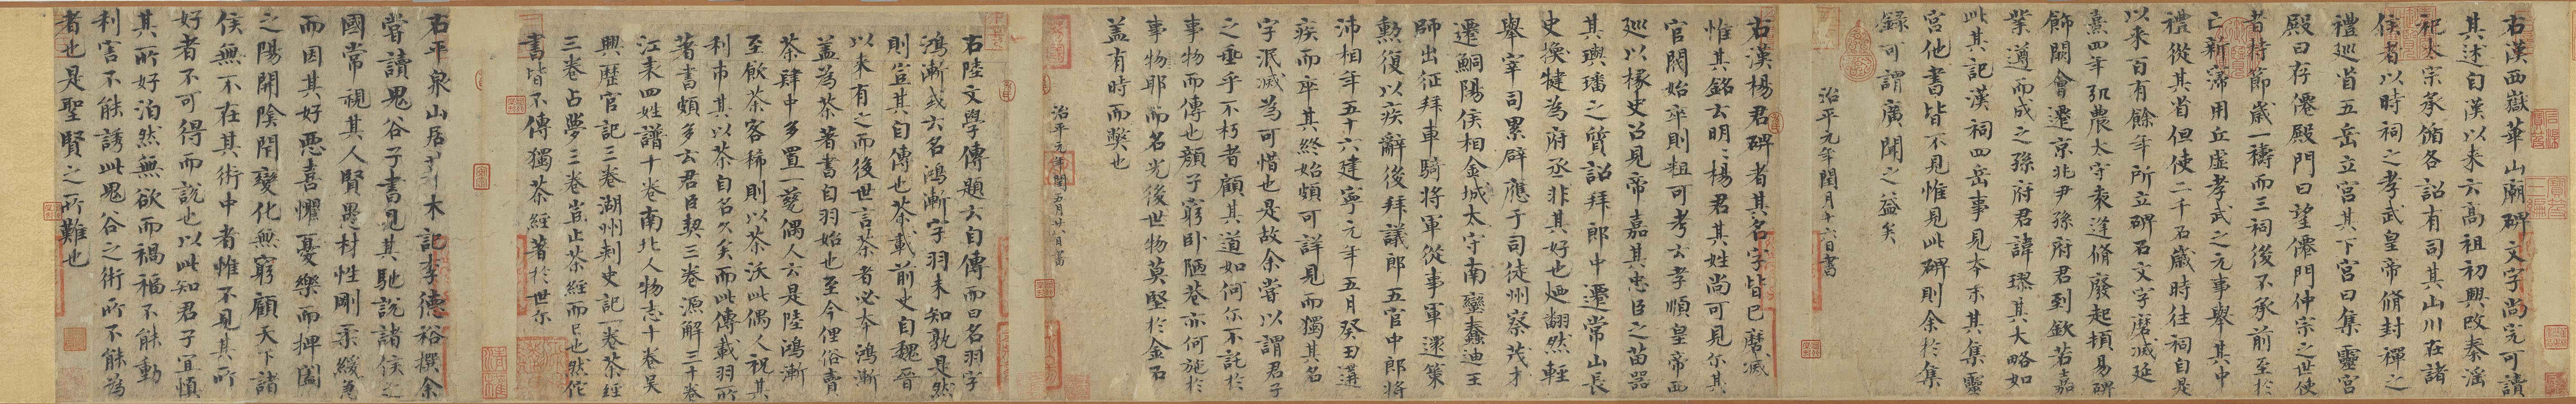 右漢西嶽華山廟碑文字尚完可讀
其述自漢以来云高祖初興改秦滛
祀太宗承循各詔有司其山川在諸
侯者以時祠之孝武皇帝脩封禪之
禮巡省五岳立宮其下宮曰集靈宮
殿曰存僊殿門曰望僊門仲宗之世使
者持節歲一禱而三祠後不承前至於
亡新寖用丘虛孝武之元事舉其中
禮從其省但使二千石歲時往祠自是
以来百有餘年所立碑石文字磨滅延
熹四年弘農太守袁逢脩廢起頓易碑
飾闕會遷京兆尹孫府君到欽若嘉
業遵而成之孫府君諱璆其大略如
此其記漢祠四岳事見本末其集靈
宮他書皆不見惟見此碑則余於集
録可謂廣聞之益矣
治平元年閏月十六日書
右漢楊君碑者其名字皆已磨滅
惟其銘云明〻楊君其姓尚可見尓其
官閥始卒則粗可考云孝順皇帝西
巡以掾史召見帝嘉其忠臣之苗器
其璵璠之質詔拜郎中遷常山長
史換犍為府丞非其好也迺翻然輕
舉宰司累辟應于司徒州察茂才
遷鮦陽侯相金城太守南蠻蠢迪王
師出征拜車騎將軍從事軍還策
勲復以疾辭後拜議郎五官中郎將
沛相年五十六建寧元年五月癸丑遘
疾而卒其終始頗可詳見而獨其名
字泯滅為可惜也是故余嘗以謂君子
之垂乎不朽者顧其道如何尓不託於
事物而傳也顏子窮卧陋巷亦何施於
事物耶而名光後世物莫堅於金石
盖有時而獘也
治平元年閏五月廿八日書
右陸文學傳題云自傳而曰名羽字
鴻漸或云名鴻漸字羽未知孰是然
則豈其自傳也茶載前史自魏晉
以来有之而後世言茶者必本鴻漸
盖為茶著書自羽始也至今俚俗賣
茶肆中多置一甆偶人云是陸鴻漸
至飲茶客稀則以茶沃此偶人祝其
利市其以茶自名久矣而此傳載羽所
著書頗多云君臣契三卷源解三十卷
江表四姓譜十卷南北人物志十卷吳
興歷官記三卷湖州刺史記一卷茶經
三卷占夢三卷豈止茶經而已也然佗
書皆不傳獨茶經著於世尓
右平泉山居木記李德裕撰余
嘗讀鬼谷子書見其馳說諸侯之
國常視其人賢愚材性剛柔緩急
而因其好惡喜懼憂樂而捭闔
之陽開陰閉變化無窮顧天下諸
侯無不在其術中者惟不見其所
好者不可得而說也以此知君子宜慎
其所好泊然無欲而禍福不能動
利害不能誘此鬼谷之術所不能為
者也是聖賢之所難也